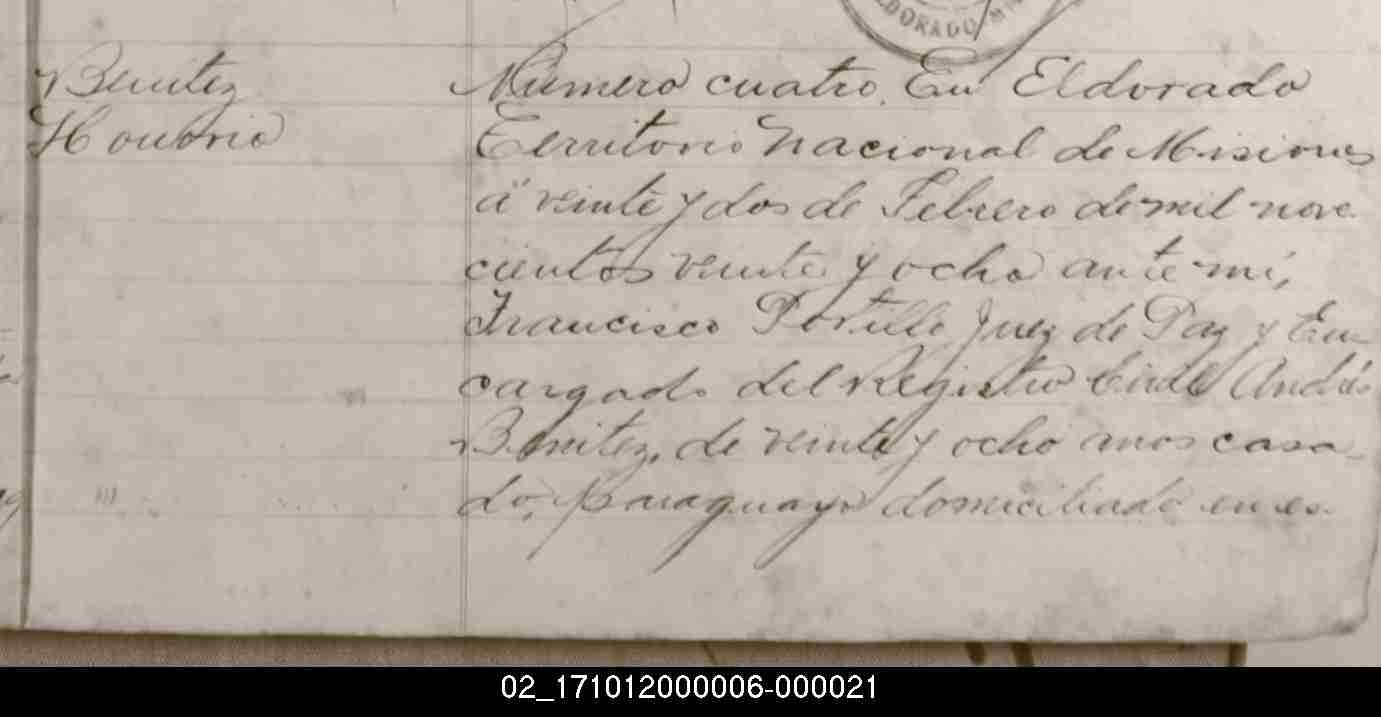 ELDORADO MI
Benitez
Honorio
Número cuatro. En Eldorado
Territorio Nacional de Misiones
á veinte y dos de Febrero de mil nove
cientos veinte y ocho ante mi,
Francisco Portillo Juez de Paz y En-
cargado del Registro Civil Andrés
Benitez, de veinte y ocho anos casa-
do, Paraguayo domiciliado en es-
02_171012000006-000021